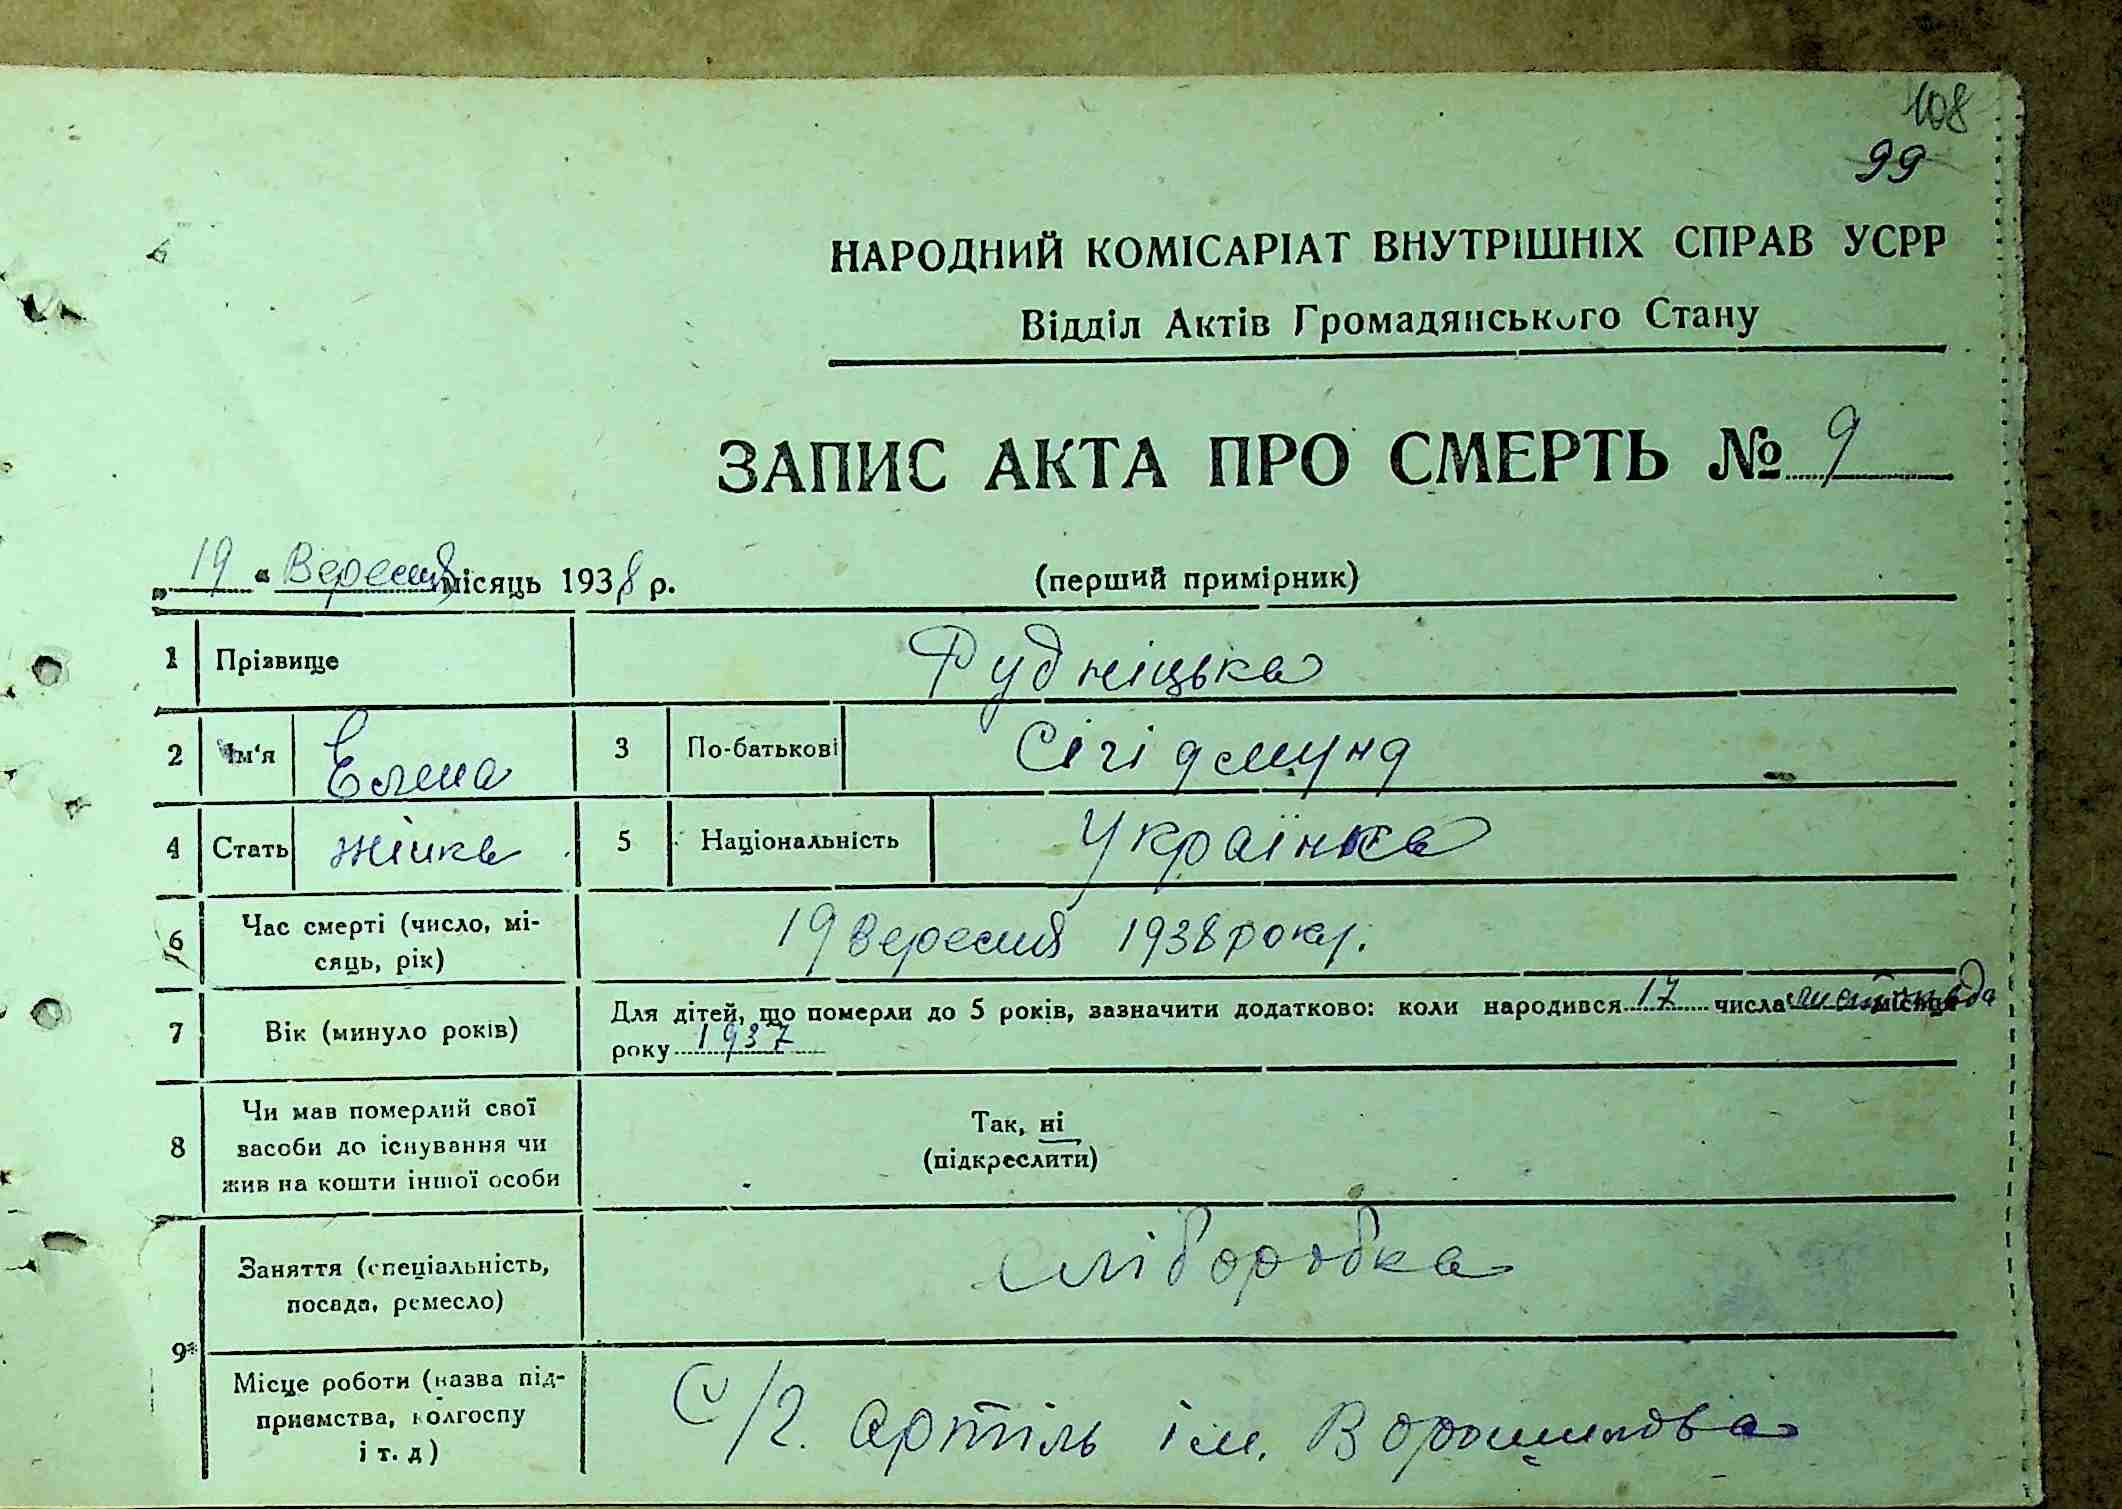 108
99
НАРОДНИЙ КОМІСАРІАТ ВНУТРІШНІХ СПРАВ УСРР
Відділ Актів Громадянського Стану
ЗАПИС АКТА ПРО СМЕРТЬ № 9
„ 19 " Вересня місяць 1938 р. (перший примірник)
1 Прізвище Рудніцька
2 Ім'я Елена 3 По-батькові Сігідмунд
4 Стать жінка 5 Національність Українка
6 Час смерті (число, мі-
сяць, рік) 19 вересня 1938 року.
7 Вік (минуло років) Для дітей, що померли до 5 років, зазначити додатково: коли народився 17 числа листопада місяця
року 1937
8 Чи мав померлий свої
васоби до існування чи
жив на кошти іншої особи
Так, ні
(підкреслити)
9*
Заняття (спеціальність,
посада, ремесло) хліборобка
Місце роботи (назва під-
приємства, колгоспу
і т. д) С/г. артіль ім. Ворошилова